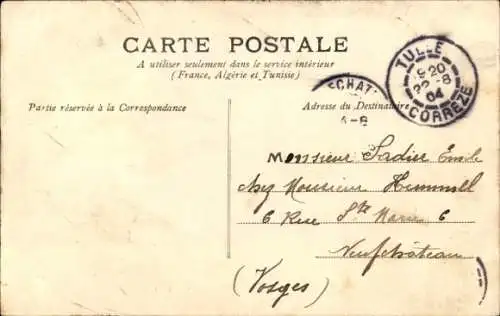 CARTE POSTALE
A utiliser seulement dans le service intérieur
(France, Algérie et Tunisie)
TULLE
9 20
22 -8
04
CORREZE
Partie réservée à la Correspondance
Adresse du Destinataire
CHAT
Monsieur Sadier Emile
chez Monsieur Hummel
6 Rue Ste Marie 6
Neufchâteau
(Vosges)